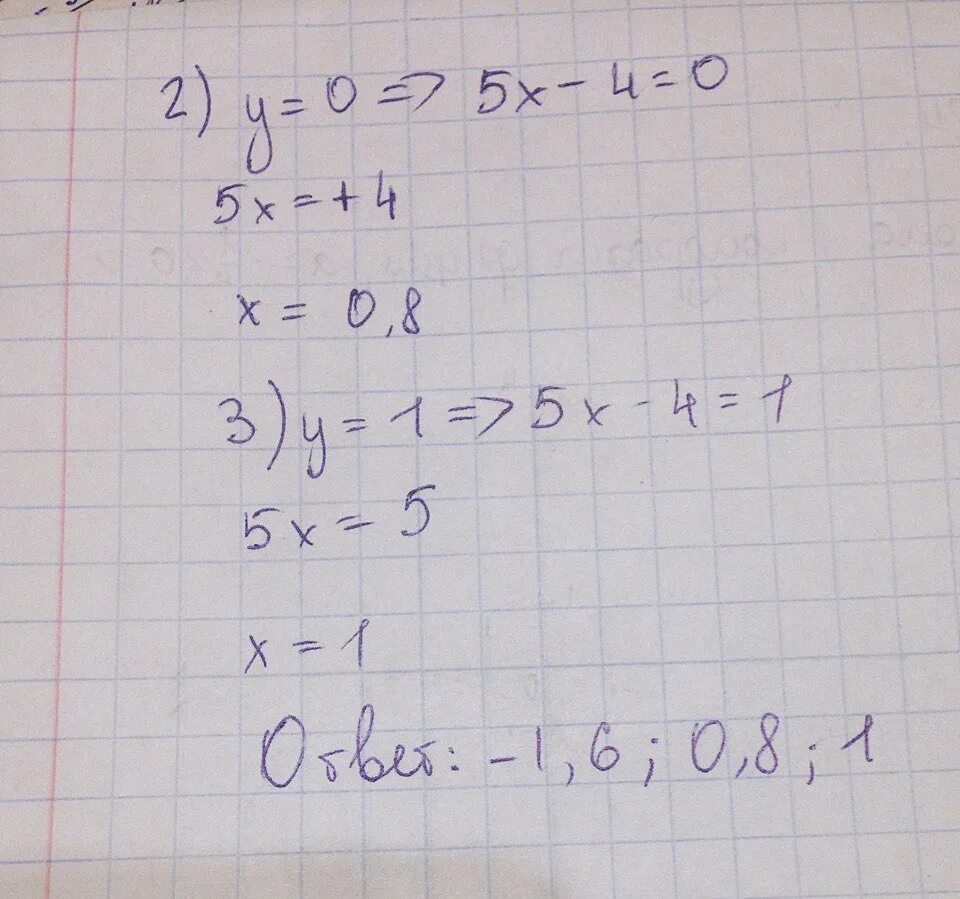 2) y = 0 => 5x - 4 = 0
5x = + 4
x = 0,8
3) y = 1 => 5x - 4 = 1
5x = 5
x = 1
Ответ: -1,6; 0,8; 1